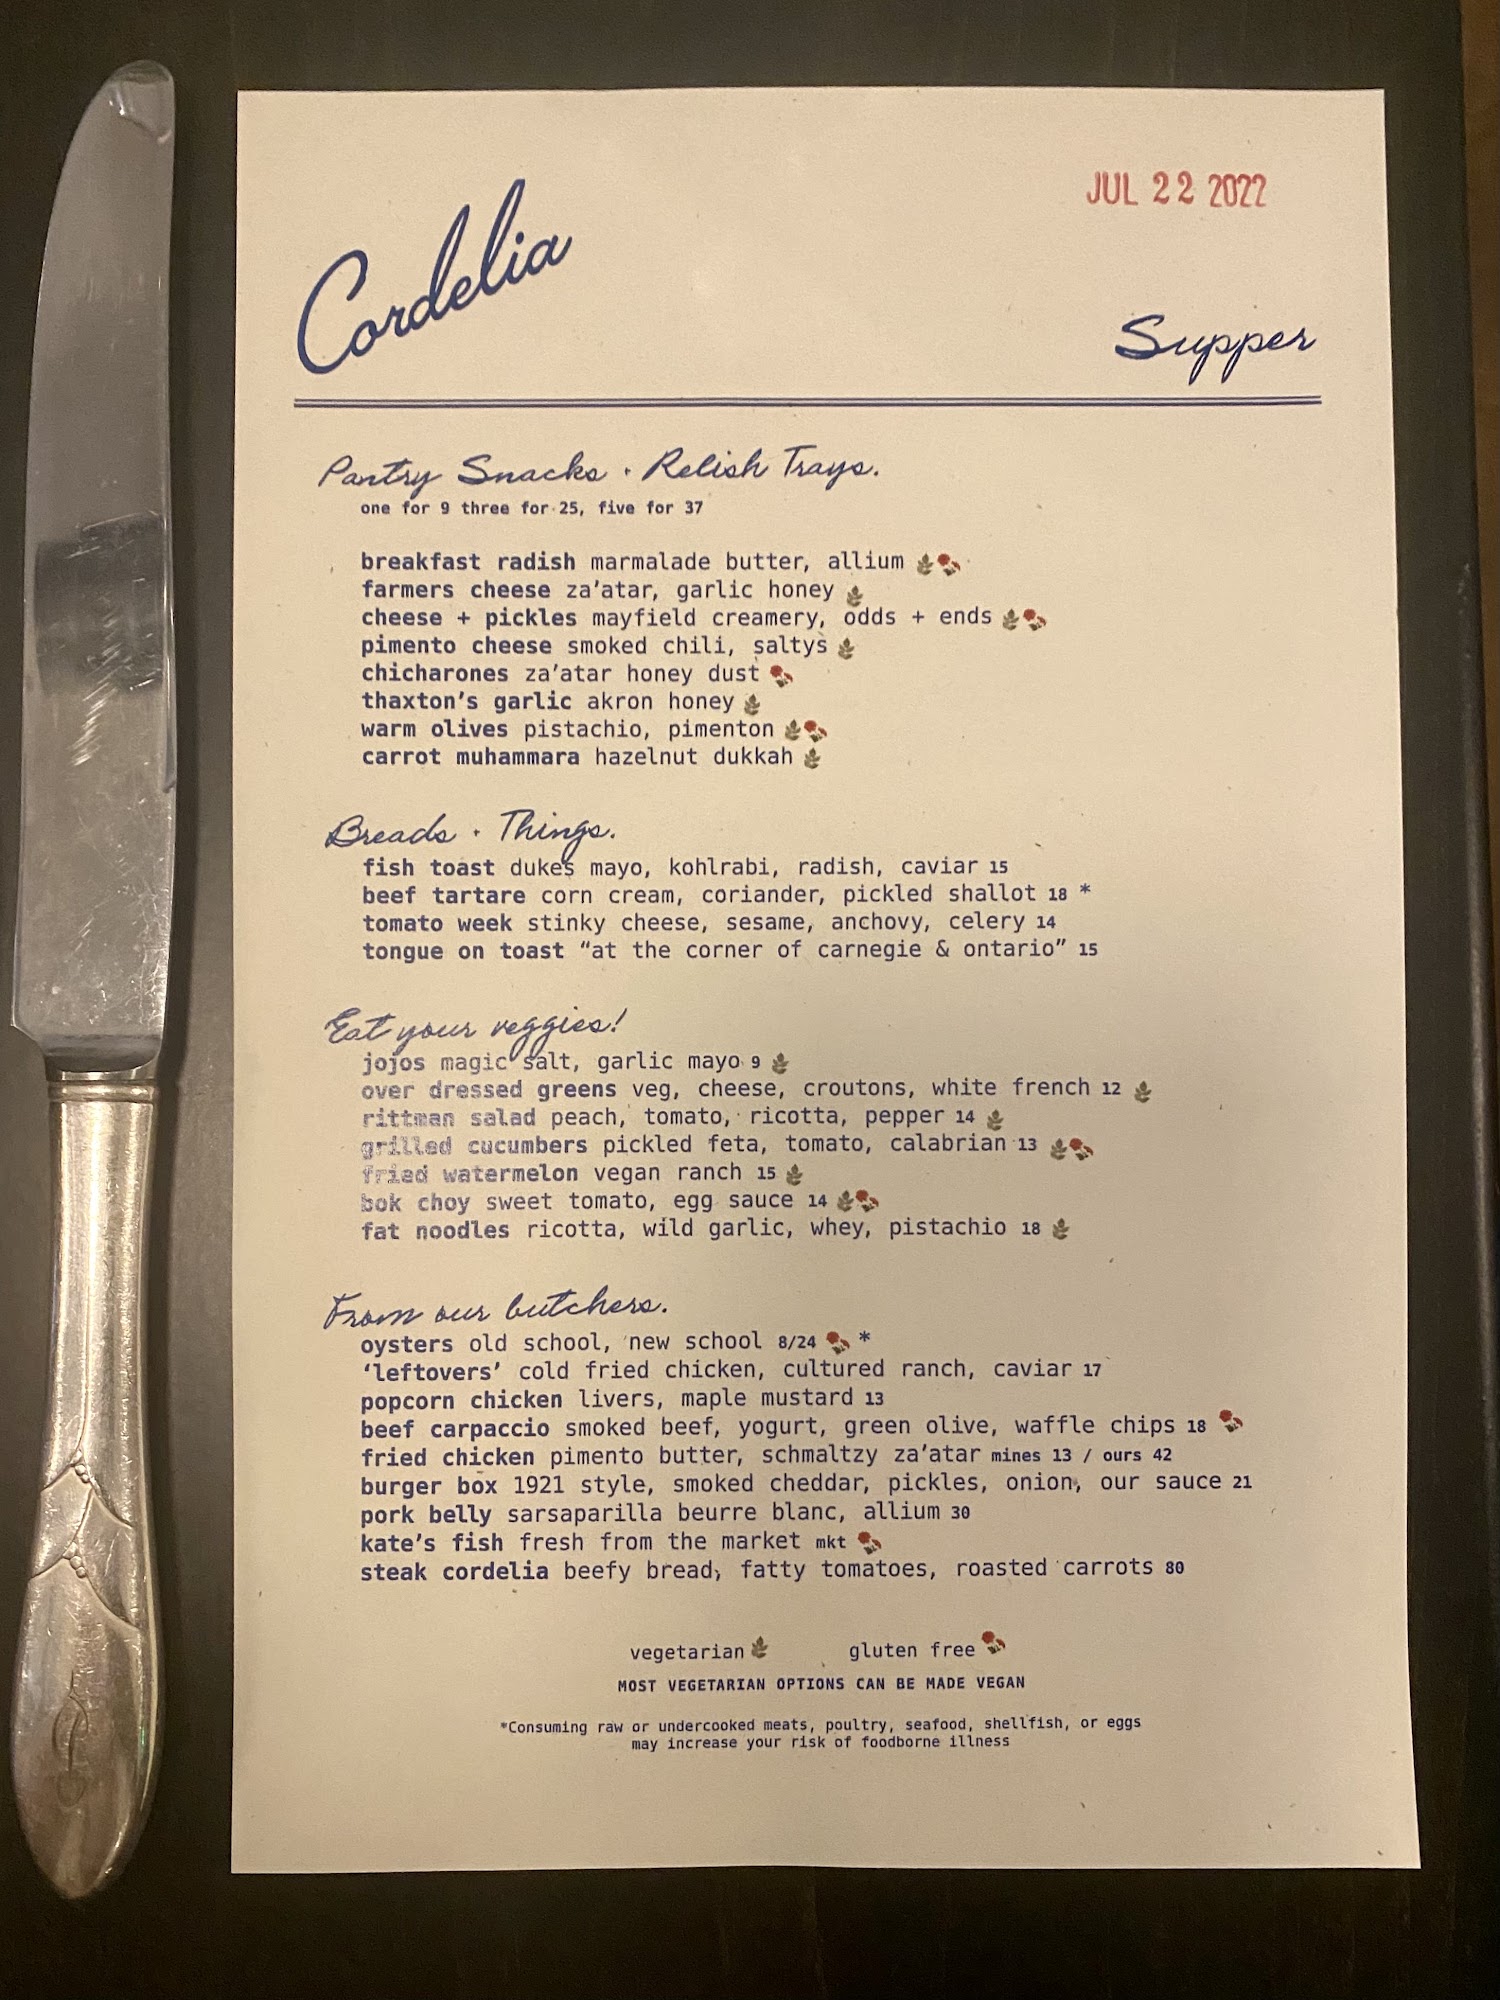 JUL 22 2022
Cordelia
Supper
Pantry Snacks + Relish Trays.
one for 9 three for 25, five for 37
breakfast radish marmalade butter, allium
farmers cheese za’atar, garlic honey
cheese + pickles mayfield creamery, odds + ends
pimento cheese smoked chili, saltys
chicharones za’atar honey dust
thaxton’s garlic akron honey
warm olives pistachio, pimenton
carrot muhammara hazelnut dukkah
Breads + Things.
fish toast dukes mayo, kohlrabi, radish, caviar 15
beef tartare corn cream, coriander, pickled shallot 18 *
tomato week stinky cheese, sesame, anchovy, celery 14
tongue on toast “at the corner of carnegie & ontario” 15
Eat your veggies!
jojos magic salt, garlic mayo 9
over dressed greens veg, cheese, croutons, white french 12
rittman salad peach, tomato, ricotta, pepper 14
grilled cucumbers pickled feta, tomato, calabrian 13
fried watermelon vegan ranch 15
bok choy sweet tomato, egg sauce 14
fat noodles ricotta, wild garlic, whey, pistachio 18
From our butchers.
oysters old school, new school 8/24 *
‘leftovers’ cold fried chicken, cultured ranch, caviar 17
popcorn chicken livers, maple mustard 13
beef carpaccio smoked beef, yogurt, green olive, waffle chips 18
fried chicken pimento butter, schmaltzy za’atar mines 13 / ours 42
burger box 1921 style, smoked cheddar, pickles, onion, our sauce 21
pork belly sarsaparilla beurre blanc, allium 30
kate’s fish fresh from the market mkt
steak cordelia beefy bread, fatty tomatoes, roasted carrots 80
vegetarian gluten free
MOST VEGETARIAN OPTIONS CAN BE MADE VEGAN
*Consuming raw or undercooked meats, poultry, seafood, shellfish, or eggs
may increase your risk of foodborne illness